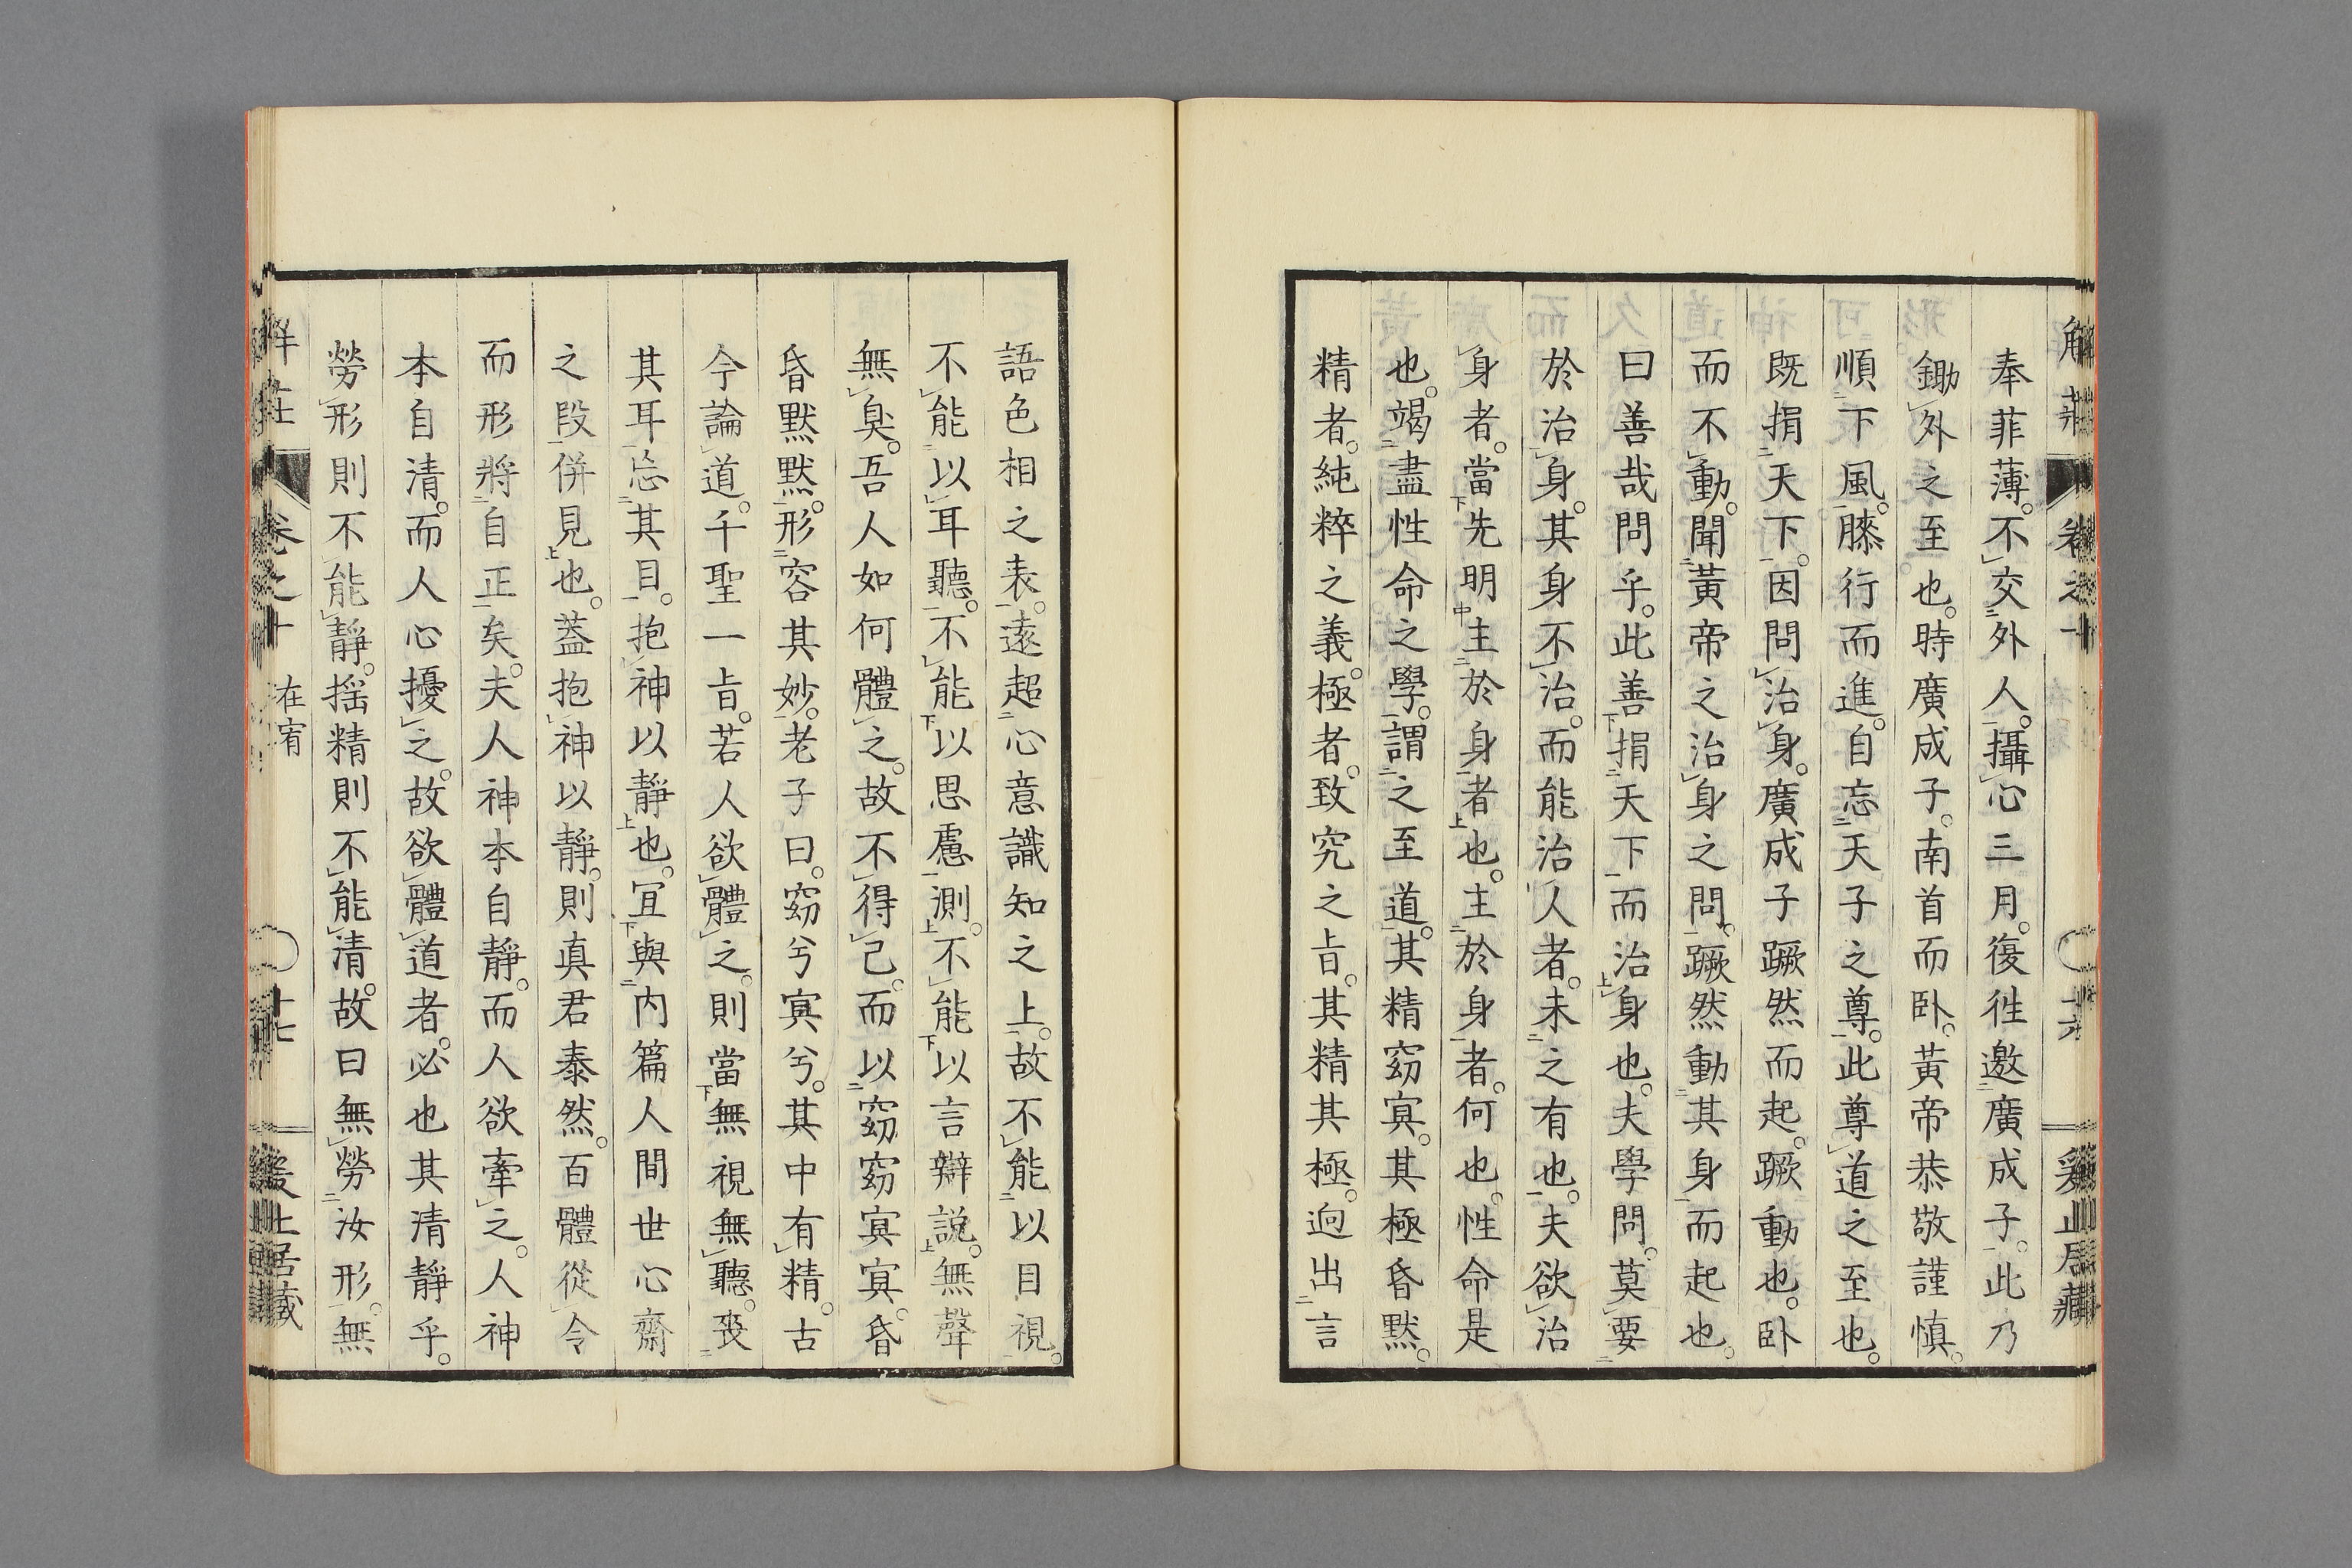 解莊 卷之十 十六 爰止居藏
奉菲薄。不交外人。攝心三月。復徃邀廣成子。此乃
鋤外之至也。時廣成子。南首而卧。黃帝恭敬謹慎。
順下風。膝行而進。自忘天子之尊。此尊道之至也。
既捐天下。因問治身。廣成子蹶然而起。蹶動也。卧
而不動。聞黃帝之治身之問。蹶然動其身而起也。
曰善哉問乎。此善捐天下而治身也。夫學問。莫要
於治身。其身不治。而能治人者。未之有也。夫欲治
身者。當先明主於身者也。主於身者。何也。性命是
也。竭盡性命之學。謂之至道。其精窈寞。其極昏黙。
精者。純粹之義。極者。致究之㫖。其精其極。逈出言
語色相之表。遠超心意識知之上。故不能以目視。
不能以耳聽。不能以思慮測。不能以言辯說。無聲
無臭。吾人如何體之。故不得已。而以窈窈寞寞。昏
昏黙黙。形容其妙。老子曰。窈兮寞兮。其中有精。古
今論道。千聖一㫖。若人欲體之。則當無視無聽。喪
其耳忘其目。抱神以靜也。冝與内篇人間世心齋
之段併見也。蓋抱神以靜。則真君泰然。百體從令
而形將自正矣。夫人神本自靜。而人欲牽之。人神
本自清。而人心擾之。故欲體道者。必也其清靜乎。
勞形則不能靜。揺精則不能清。故曰無勞汝形。無
解莊 卷之十 在宥 十七 爰止居藏